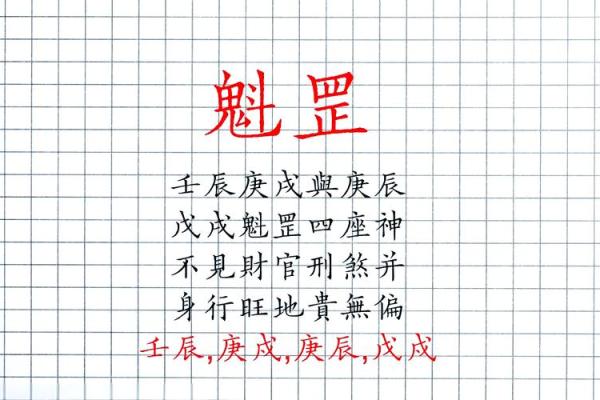 魁罡
壬辰庚戌與庚辰
戊戌魁罡四座神
不見財官刑煞并
身行旺地貴無偏
壬辰,庚戌,庚辰,戊戌